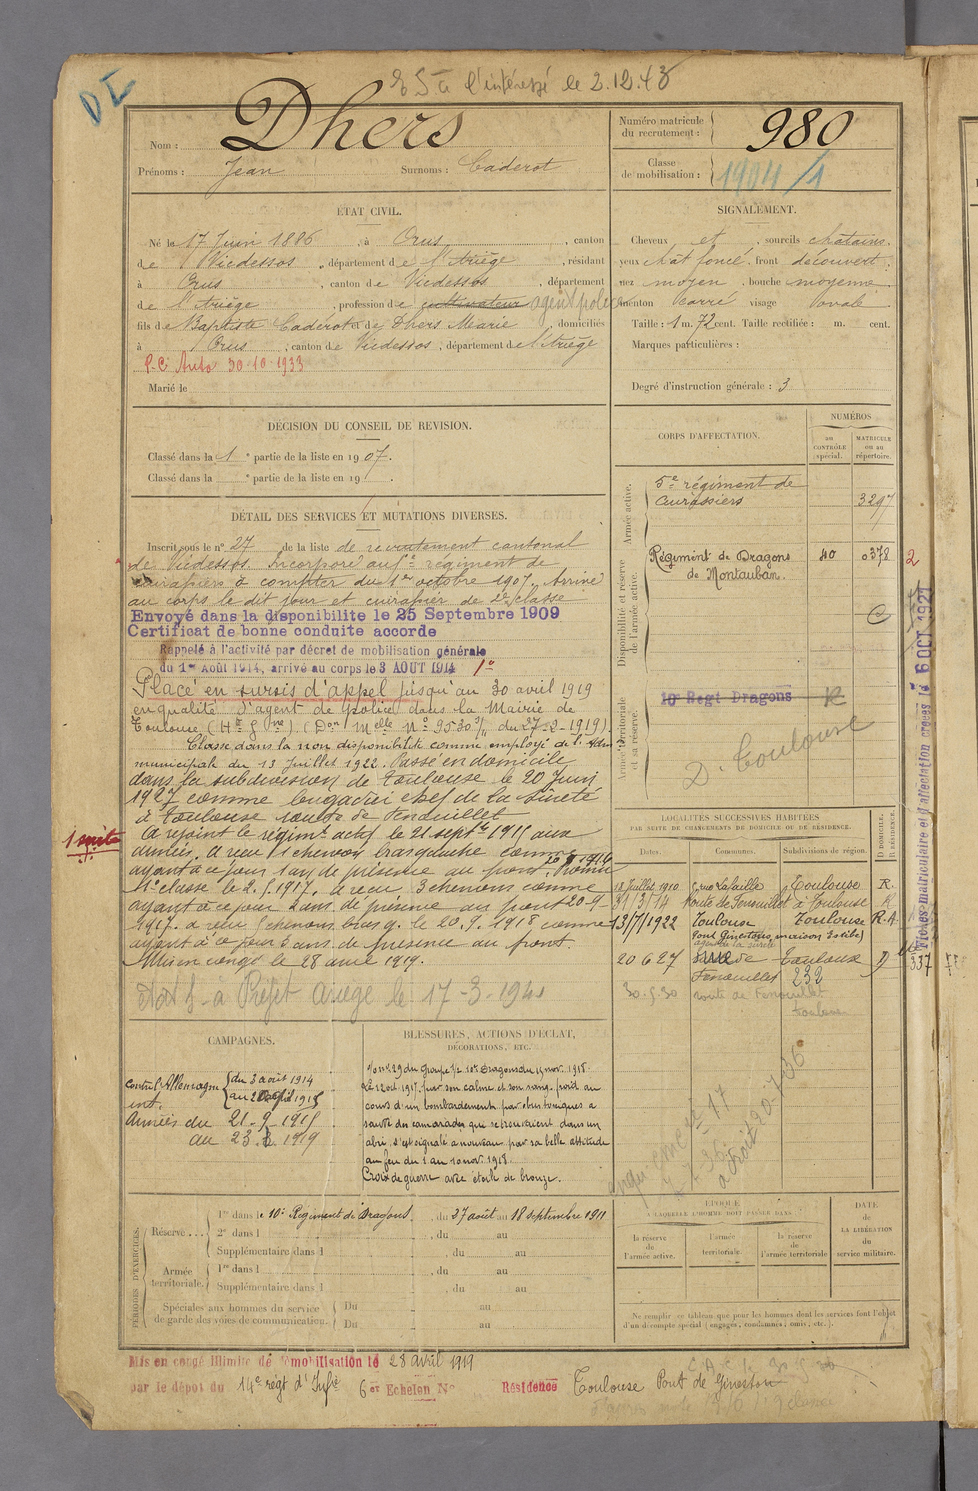 DE
ES à l'intéressé le 2.12.43
Nom : Dhers
Prénoms : Jean Surnoms : Caderot
Numéro matricule du recrutement : 980
Classe de mobilisation : 1904/1
ÉTAT CIVIL.
Né le 17 Juin 1886, à Orus, canton
de Vicdessos, département de l'Ariège, résidant
à Orus, canton de Vicdessos, département
de l'Ariège, profession de cultivateur agent police
fils de Baptiste Caderot et de Dhers Marie, domiciliés
à Orus, canton de Vicdessos, département de l'Ariège
P.C. Auto 30-10-1933
Marié le
SIGNALEMENT.
Cheveux et, sourcils châtains.
yeux chât foncé. front découvert.
nez moyen, bouche moyenne
menton carré visage ovale
Taille : 1 m. 72 cent. Taille rectifiée : m. cent.
Marques particulières :
Degré d'instruction générale : 3
DÉCISION DU CONSEIL DE REVISION.
Classé dans la 1e partie de la liste en 1907.
Classé dans la e partie de la liste en 19 .
DÉTAIL DES SERVICES ET MUTATIONS DIVERSES.
Inscrit sous le n° 27 de la liste de recrutement cantonal
de Vicdessos. Incorporé au 5e régiment de
cuirassiers à compter du 1er octobre 1907. Arrivé
au corps le dit jour et cuirassier de 2e classe
Envoyé dans la disponibilite le 25 Septembre 1909
Certificat de bonne conduite accorde
Rappelé à l'activité par décret de mobilisation générale
du 1er Août 1914, arrivé au corps le 3 AOUT 1914 1°
Placé en sursis d'appel jusqu'au 30 avril 1919
en qualité d'agent de police dans la Mairie de
Toulouse (Hte Gne). (Don Melle No 9530 du 27-2-1919).
Classé dans la non disponibilité comme employé de l'
municipale du 13 Juillet 1922. Passé en domicile
dans la subdivision de Toulouse le 20 Juin
1927 comme brigadier chef de la Sûreté
à Toulouse route de Fenouillet
1 suite
A rejoint le régimt actif le 21 septbre 1915 aux
armées. A reçu 1 chevron brisquahe comme
ayant à ce jour 1 an de présence au front. Promu
1re classe le 2.5.1917. A reçu 3 chevrons comme
ayant à ce jour 2 ans de présence au front 20-9
1917. A reçu chevrons brisq. le 20.9.1918 comme
ayant à ce jour 3 ans de présence au front.
Mis en congé le 28 avril 1919.
à Préfet Ariège le 17-3-1941
CORPS D'AFFECTATION.
NUMÉROS
au CONTRÔLE spécial.
MATRICULE ou au répertoire.
Armée active.
5e régiment de
Cuirassiers 3297
Disponibilité et réserve de l'armée active.
Régiment de Dragons 40 0378 2
de Montauban.
C
Armée territoriale et sa réserve.
10e Regt Dragons R
D. Toulouse
Fiches matriculaire et d'affectation créées le 6 OCT 1927
LOCALITÉS SUCCESSIVES HABITÉES
PAR SUITE DE CHANGEMENTS DE DOMICILE OU DE RÉSIDENCE.
Dates. Communes. Subdivisions de région. D DOMICILE. R RÉSIDENCE.
12 Juillet 1910 rue Lafaille Toulouse R.
31/3/14 Route de Fenouillet à Toulouse R
13/7/1922 Toulouse Toulouse R.A.
Pont Ginestous maison Estibe)
agent de la sûreté
20 6 27 rue de Toulouse D 337
Fenouillet 232
30.5.30 route de Fenouillet
Toulouse
CAMPAGNES.
Contre l'Allemagne du 3 août 1914
int. au 20 1915
Armées du 21-9-1915
au 23. 3. 1919
BLESSURES, ACTIONS D'ÉCLAT,
DÉCORATIONS, ETC.
Le 12 oct 1917, par son calme et son sang-froid au
cours d'un bombardement par obus toxiques a
sauvé des camarades qui se trouvaient dans un
abri, s'est signalé à nouveau par sa belle attitude
au feu du 1 au 10 nov. 1918.
Croix de guerre avec étoile de bronze.
PÉRIODES D'EXERCICES.
Réserve.... 1re dans le 10e Régiment de Dragons, du 27 août au 18 septembre 1911
2e dans l , du au
Supplémentaire dans l , du au
Armée territoriale. 1re dans l , du au
Supplémentaire dans l , du au
Spéciales aux hommes du service de garde des voies de communication. Du au
Du au
ÉPOQUE
A LAQUELLE L'HOMME DOIT PASSER DANS
la réserve de l'armée active.
l'armée territoriale.
la réserve de l'armée territoriale
DATE DE LA LIBÉRATION du service militaire.
Ne remplir ce tableau que pour les hommes dont les services font l'objet
d'un décompte spécial (engagés, condamnés, omis, etc.).
Mis en congé illimité de démobilisation le 28 avril 1919
par le dépôt du 14e régt d'Infie 6er Echelon N° Résidence Toulouse Pont de Gineston